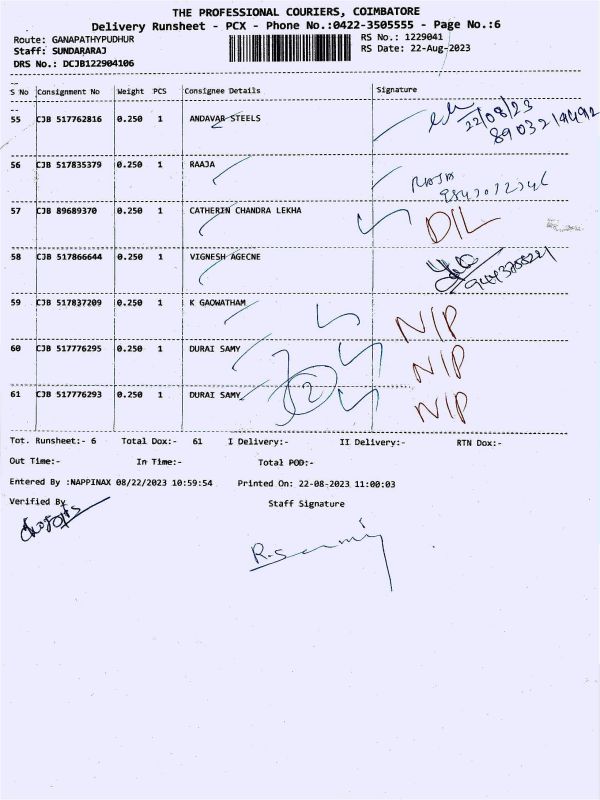 THE PROFESSIONAL COURIERS, COIMBATORE
Delivery Runsheet - PCX - Phone No.:0422-3505555 - Page No.:6
Route: GANAPATHYPUDHUR RS No.: 1229041
Staff: SUNDARARAJ RS Date: 22-Aug-2023
DRS No.: DCJB122904106
S No Consignment No Weight PCS Consignee Details Signature
55 CJB 517762816 0.250 1 ANDAVAR STEELS
22/08/23
56 CJB 517835379 0.250 1 RAAJA RAJA
57 CJB 89689370 0.250 1 CATHERIN CHANDRA LEKHA D/L
58 CJB 517866644 0.250 1 VIGNESH AGECNE
59 CJB 517837209 0.250 1 K GAOWATHAM N/P
60 CJB 517776295 0.250 1 DURAI SAMY N/P
2
61 CJB 517776293 0.250 1 DURAI SAMY N/P
Tot. Runsheet:- 6 Total Dox:- 61 I Delivery:- II Delivery:- RTN Dox:-
Out Time:- In Time:- Total POD:-
Entered By :NAPPINAX 08/22/2023 10:59:54 Printed On: 22-08-2023 11:00:03
Verified By Staff Signature